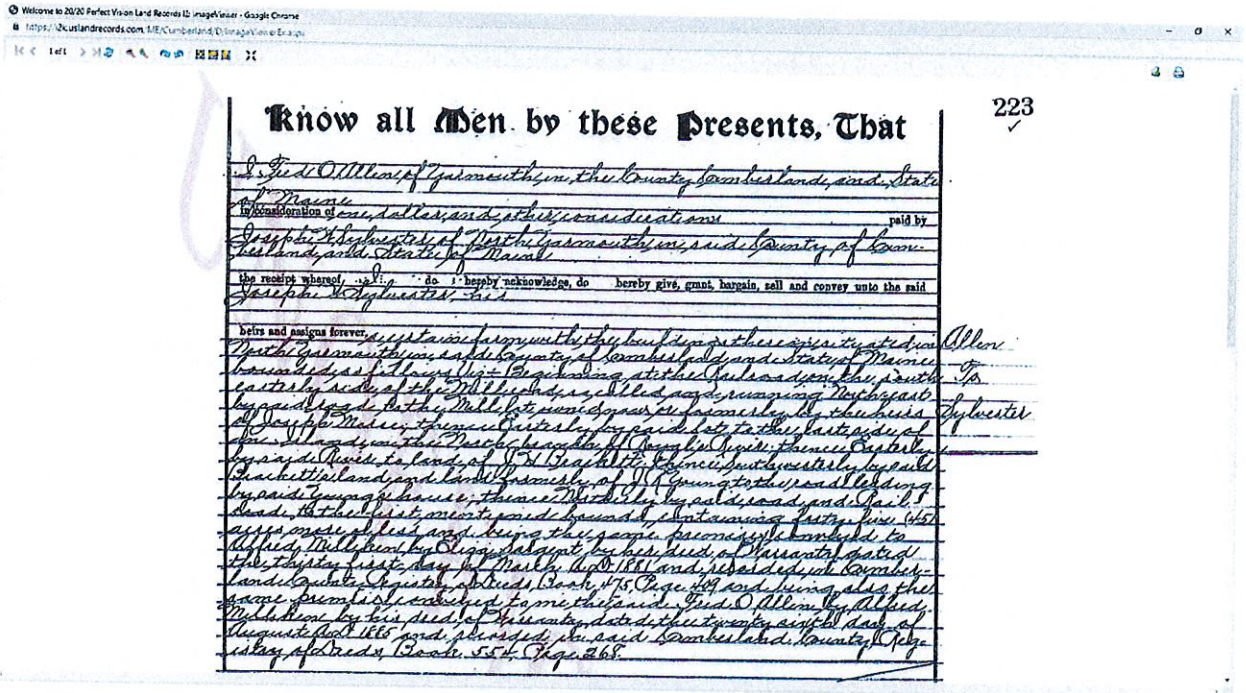 Welcome to 20/20 Perfect Vision Land Records I2: ImageViewer - Google Chrome
uslandrecords.com/ME/Cumberland/D/ImageViewerEx.aspx
1 of 1
223
Know all Men by these Presents, That
I Fred O Allen of Yarmouth, in the County Cumberland, and State
of Maine
in consideration of one dollar and other considerations paid by
Joseph H Sylvester of North Yarmouth in said County of Cum-
berland and State of Maine
the receipt whereof, I do hereby acknowledge, do hereby give, grant, bargain, sell and convey unto the said
Joseph H Sylvester, his
heirs and assigns forever, a certain farm with the buildings thereon situated in
Allen
North Yarmouth in said County of Cumberland and State of Maine
bounded as follows Viz Beginning at the Railroad on the south
To
easterly side of the Mill road, so called and running Northeast
by said road to the Mill lot owned now or formerly by the heirs
Sylvester
of Joseph thence Easterly by said lot to the east side of
an Island, in the North branch of Royal's River thence Easterly
by said River to land of Brackett, thence southwesterly by said
Brackett's land and land formerly of Young to the road leading
by said Young's house, thence Northerly by said road and Rail
road to the first mentioned bounds, containing forty five (45)
acres more or less and being the same premises conveyed to
Alfred Milliken by Sargent by his deed of Warranty dated
the thirty first day of March A.D. 1881 and recorded in Cumber-
land County Registry of Deeds, Book 475, Page 409 and being also the
same premises conveyed to me the said Fred O Allen by Alfred
Milliken by his deed of Warranty dated the twenty sixth day of
August A.D. and recorded in said Cumberland County Reg-
istry of Deeds, Book 554, Page 268.